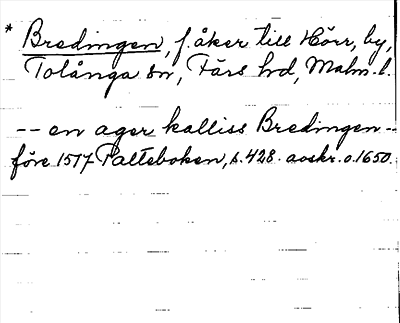 * Bredingen, f. åker till Hörr, by,
Tolånga sn, Färs hd, Malm. l.
-- en ager kalliss Bredingen --
före 1517 Palteboken, s. 428. avskr. o. 1650.